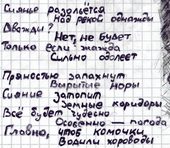 Сиянье разольётся
Над рекой однажды
Дважды?
Нет, не будет
Только если жажда
Сильно одолеет
Пряностью запахнут
Вырытые норы
Сияние затопит
Земные коридоры
Всё будет чудесно
Особенно — погода
Главно, чтоб комочки
Водили хороводы